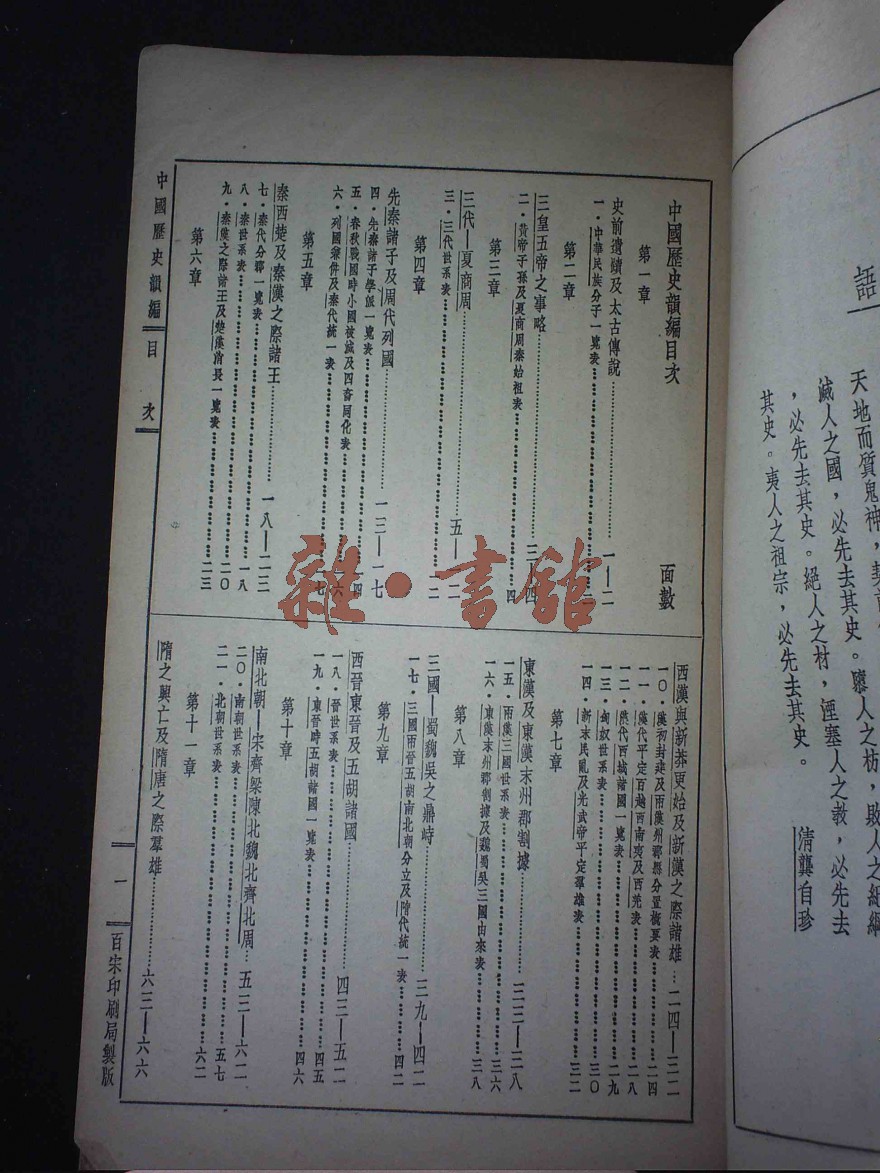 語
天地而質鬼神，
滅人之國，必先去其史。隳人之枋，敗人之紀綱
，必先去其史。絕人之材，湮塞人之教，必先去
其史。夷人之祖宗，必先去其史。
清龔自珍
中國歷史韻編目次
面數
第一章
史前遺蹟及太古傳說……一—二
一．中華民族分子一覽表……
第二章
三皇五帝之事略……三—四
二．黃帝子孫及夏商周秦始祖表……四
第三章
三代—夏商周……五—一二
三．三代世系表……一二
第四章
先秦諸子及周代列國……一三—一七
四．先秦諸子學派一覽表……四
五．春秋戰國時小國被滅及四裔同化表……六
六．列國兼併及秦代統一表……七
第五章
秦西楚及秦漢之際諸王……一八—二三
七．秦代分郡一覽表……一八
八．秦世系表……二〇
九．秦漢之際諸王及楚漢酋長一覽表……二三
第六章
西漢與新莽更始及新漢之際諸雄…二四—三二
一〇．漢初封建及兩漢州郡縣分置概要表……二四
一一．漢代平定百越西南夷及西羌表……二八
一二．漢代西域諸國一覽表……二九
一三．匈奴世系表……三〇
一四．新末民亂及光武帝平定羣雄表……三二
第七章
東漢及東漢末州郡割據……三三—三八
一五．兩漢三國世系表……三六
一六．東漢末州郡割據及魏蜀吳三國由來表……三八
第八章
三國—蜀魏吳之鼎峙……三九—四二
一七．三國兩晉五胡南北朝分立及隋代統一表……四二
第九章
西晉東晉及五胡諸國……四三—五二
一八．晉世系表……四五
一九．東晉時五胡諸國一覽表……四六
第十章
南北朝—宋齊梁陳北魏北齊北周…五三—六二
二〇．南朝世系表……五七
二一．北朝世系表……六二
第十一章
隋之興亡及隋唐之際羣雄……六三—六六
中國歷史韻編
目次
一
百宋印刷局製版
雜·書館